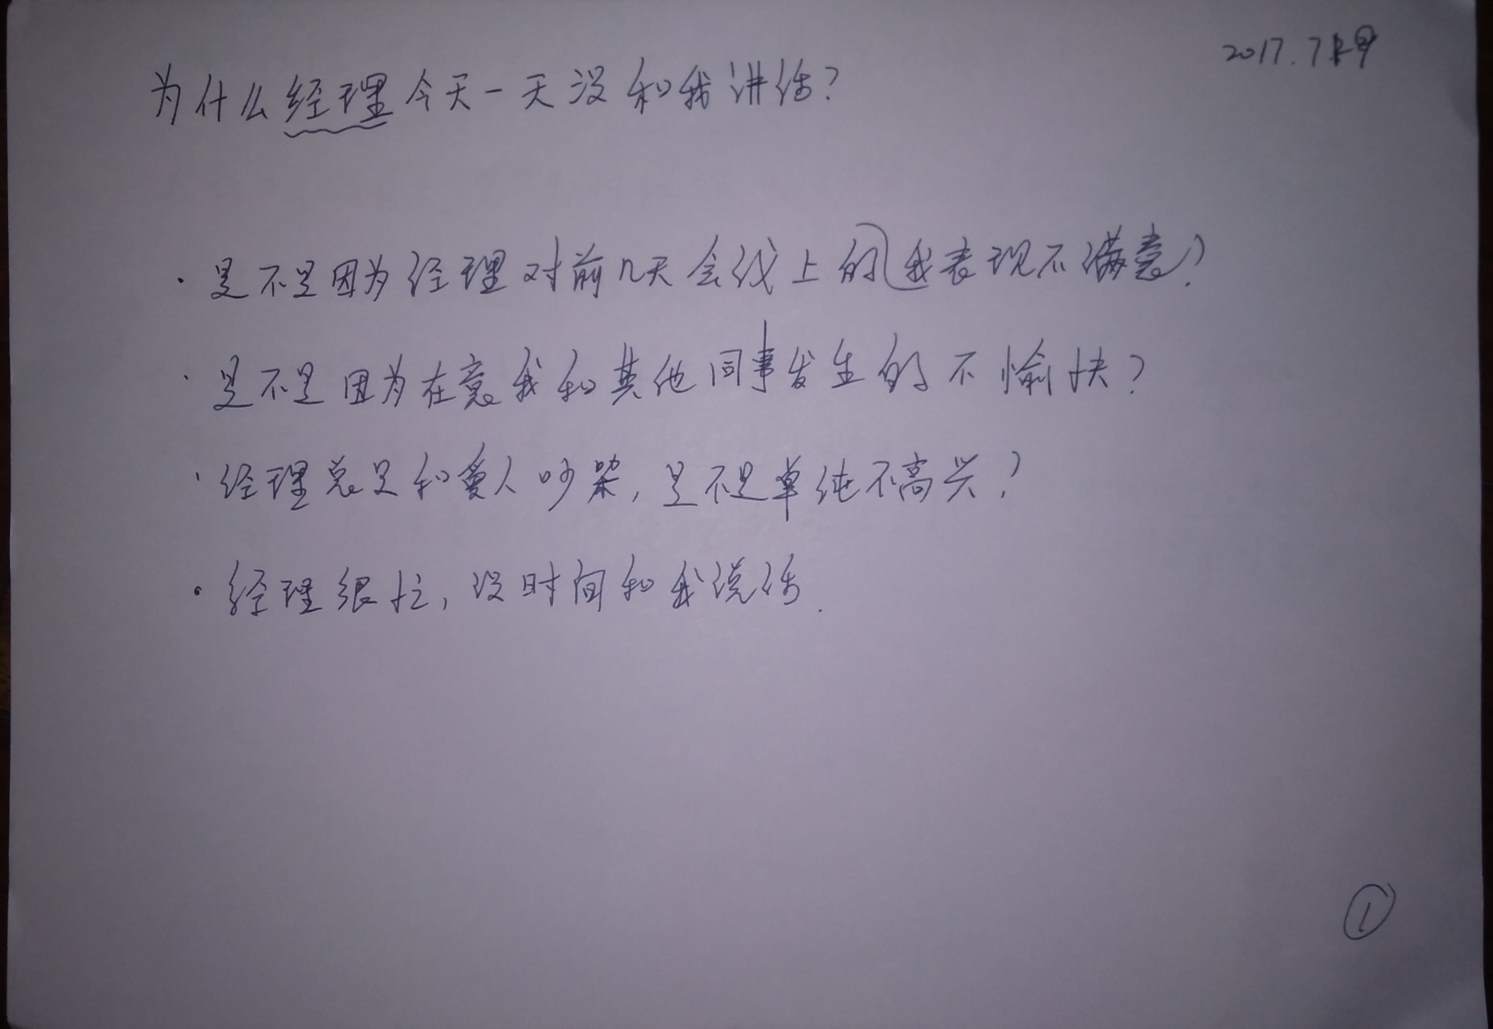 2017.7月
为什么经理今天一天没和我讲话?
·是不是因为经理对前几天会议上的我表现不满意?
·是不是因为在意我和其他同事发生的不愉快?
·经理总是和爱人吵架,是不是单纯不高兴?
·经理很忙,没时间和我说话.
①